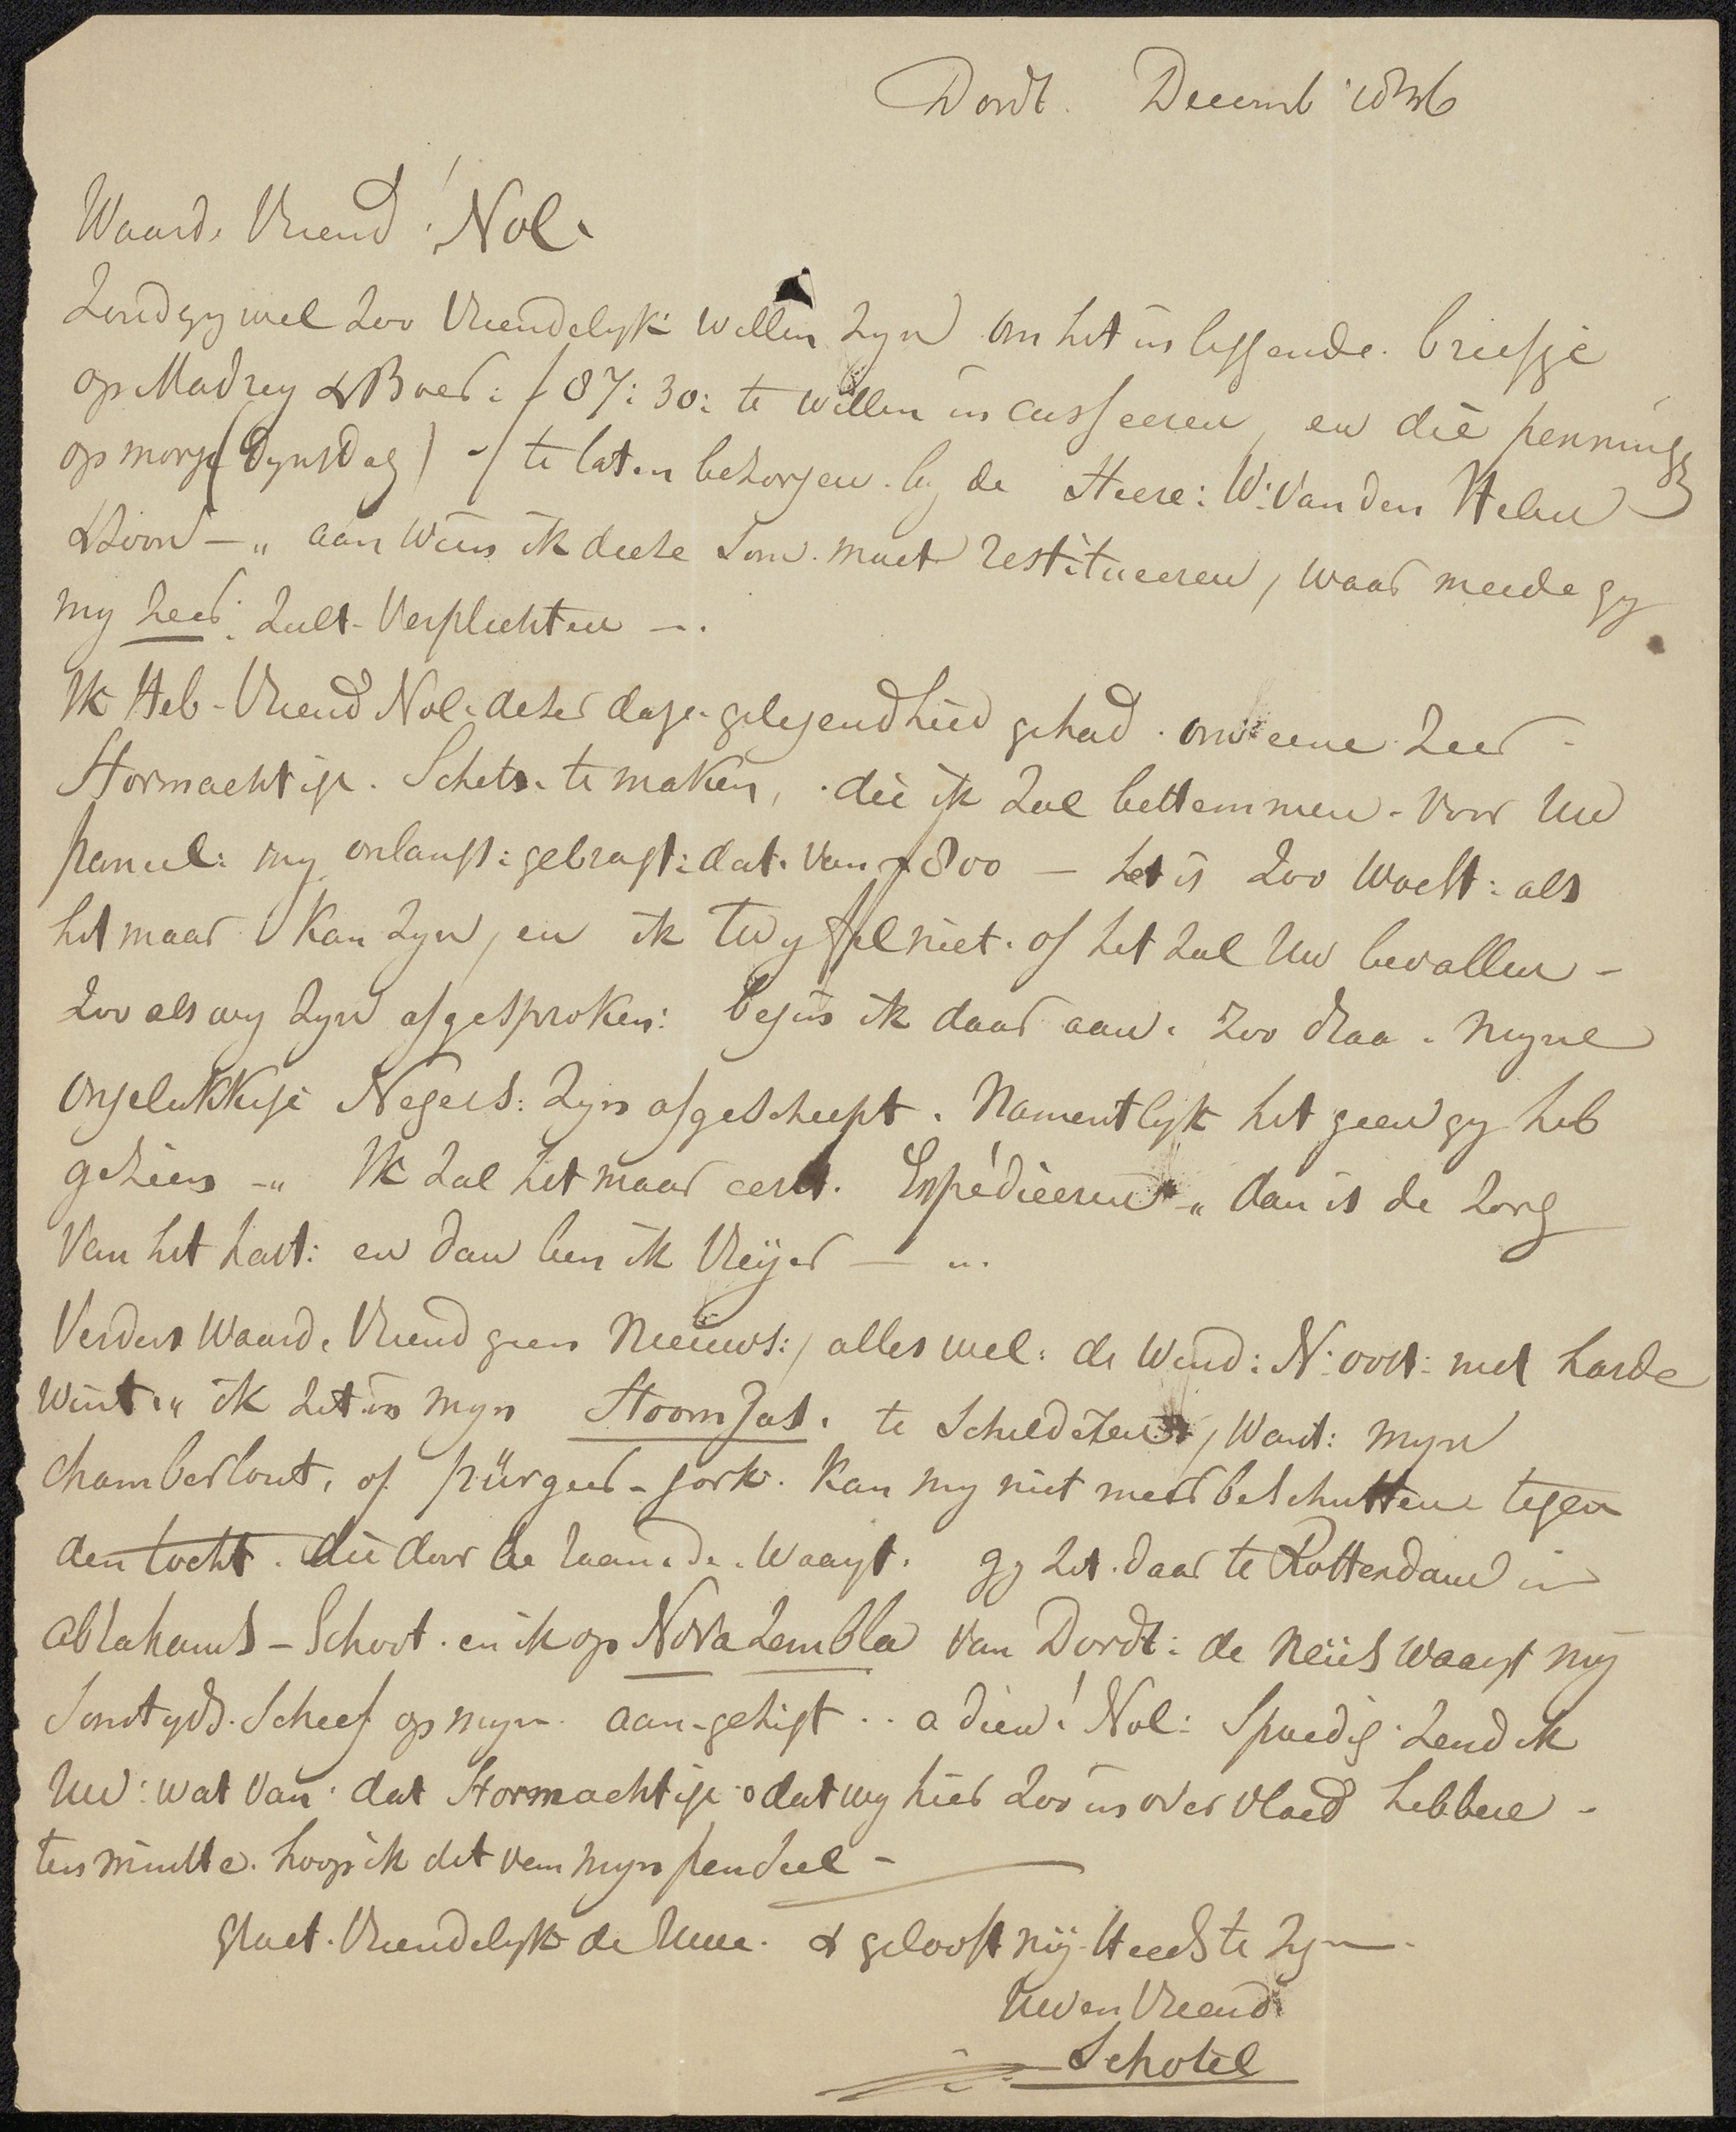 Dordt. Decemb 1836
Waarde Vriend! Nol.
Zoud gy wel zoo vriendelyk willen zyn om het in leggende briefje
op Madrey & Boer: ƒ 87:30: te willen in casseeren, en die penning
op morge (Dynsdag) te laten bezorgen by de Heere: W: van den Helm
& Zoon — „ aan wien ik deeze som moet restitueeren, waar meede gy
my zeer: zult verplichten —.
Ik Heb - Vriend Nol. dezer dage gelegendhied gehad om eene zeer
Stormachtige Schets te maken, die ik zal bestemmen voor Uw
paneel: my onlangs: gebragt: dat van ƒ 800 — het is zoo woest: als
het maar kan zyn, en ik twyffel niet of het zal Uw bevallen -
zoo als wy zyn afgesproken: begin ik daar aan. zoo draa myne
ongelukkige Negers: zyn afgescheept. Namentlyk het geen gy heb
gezien -„ Ik zal het maar eerst Expédieeren -„ dan is de zorg
van het hart: en dan ben ik vrijer — „.
Verders waarde Vriend geen nieuws:, alles wel: de wind: N: oost: met harde
wint.„ ik zit in myn Stoomjas. te schilderen, want: myn
chamberlout, of pürgeer-jork. kan my niet meer beschutten tegen
den tocht. die door de raam waayt. gy zit daar te Rotterdam in
Abrahams-Schoot. en ik op Nova Zembla van Dordt: de neus waayt my
somtyds scheef op myn aan-gezigt .. adieu! Nol: Spoedig zend ik
Uw: wat van dat Stormachtige dat wy hier zoo in overvloed hebben -
ten minste. hoop ik dit van myn penseel -
Groet. Vriendelyk de Uwe. & gelooft my steeds te zyn
Uwen Vriend
Schotel